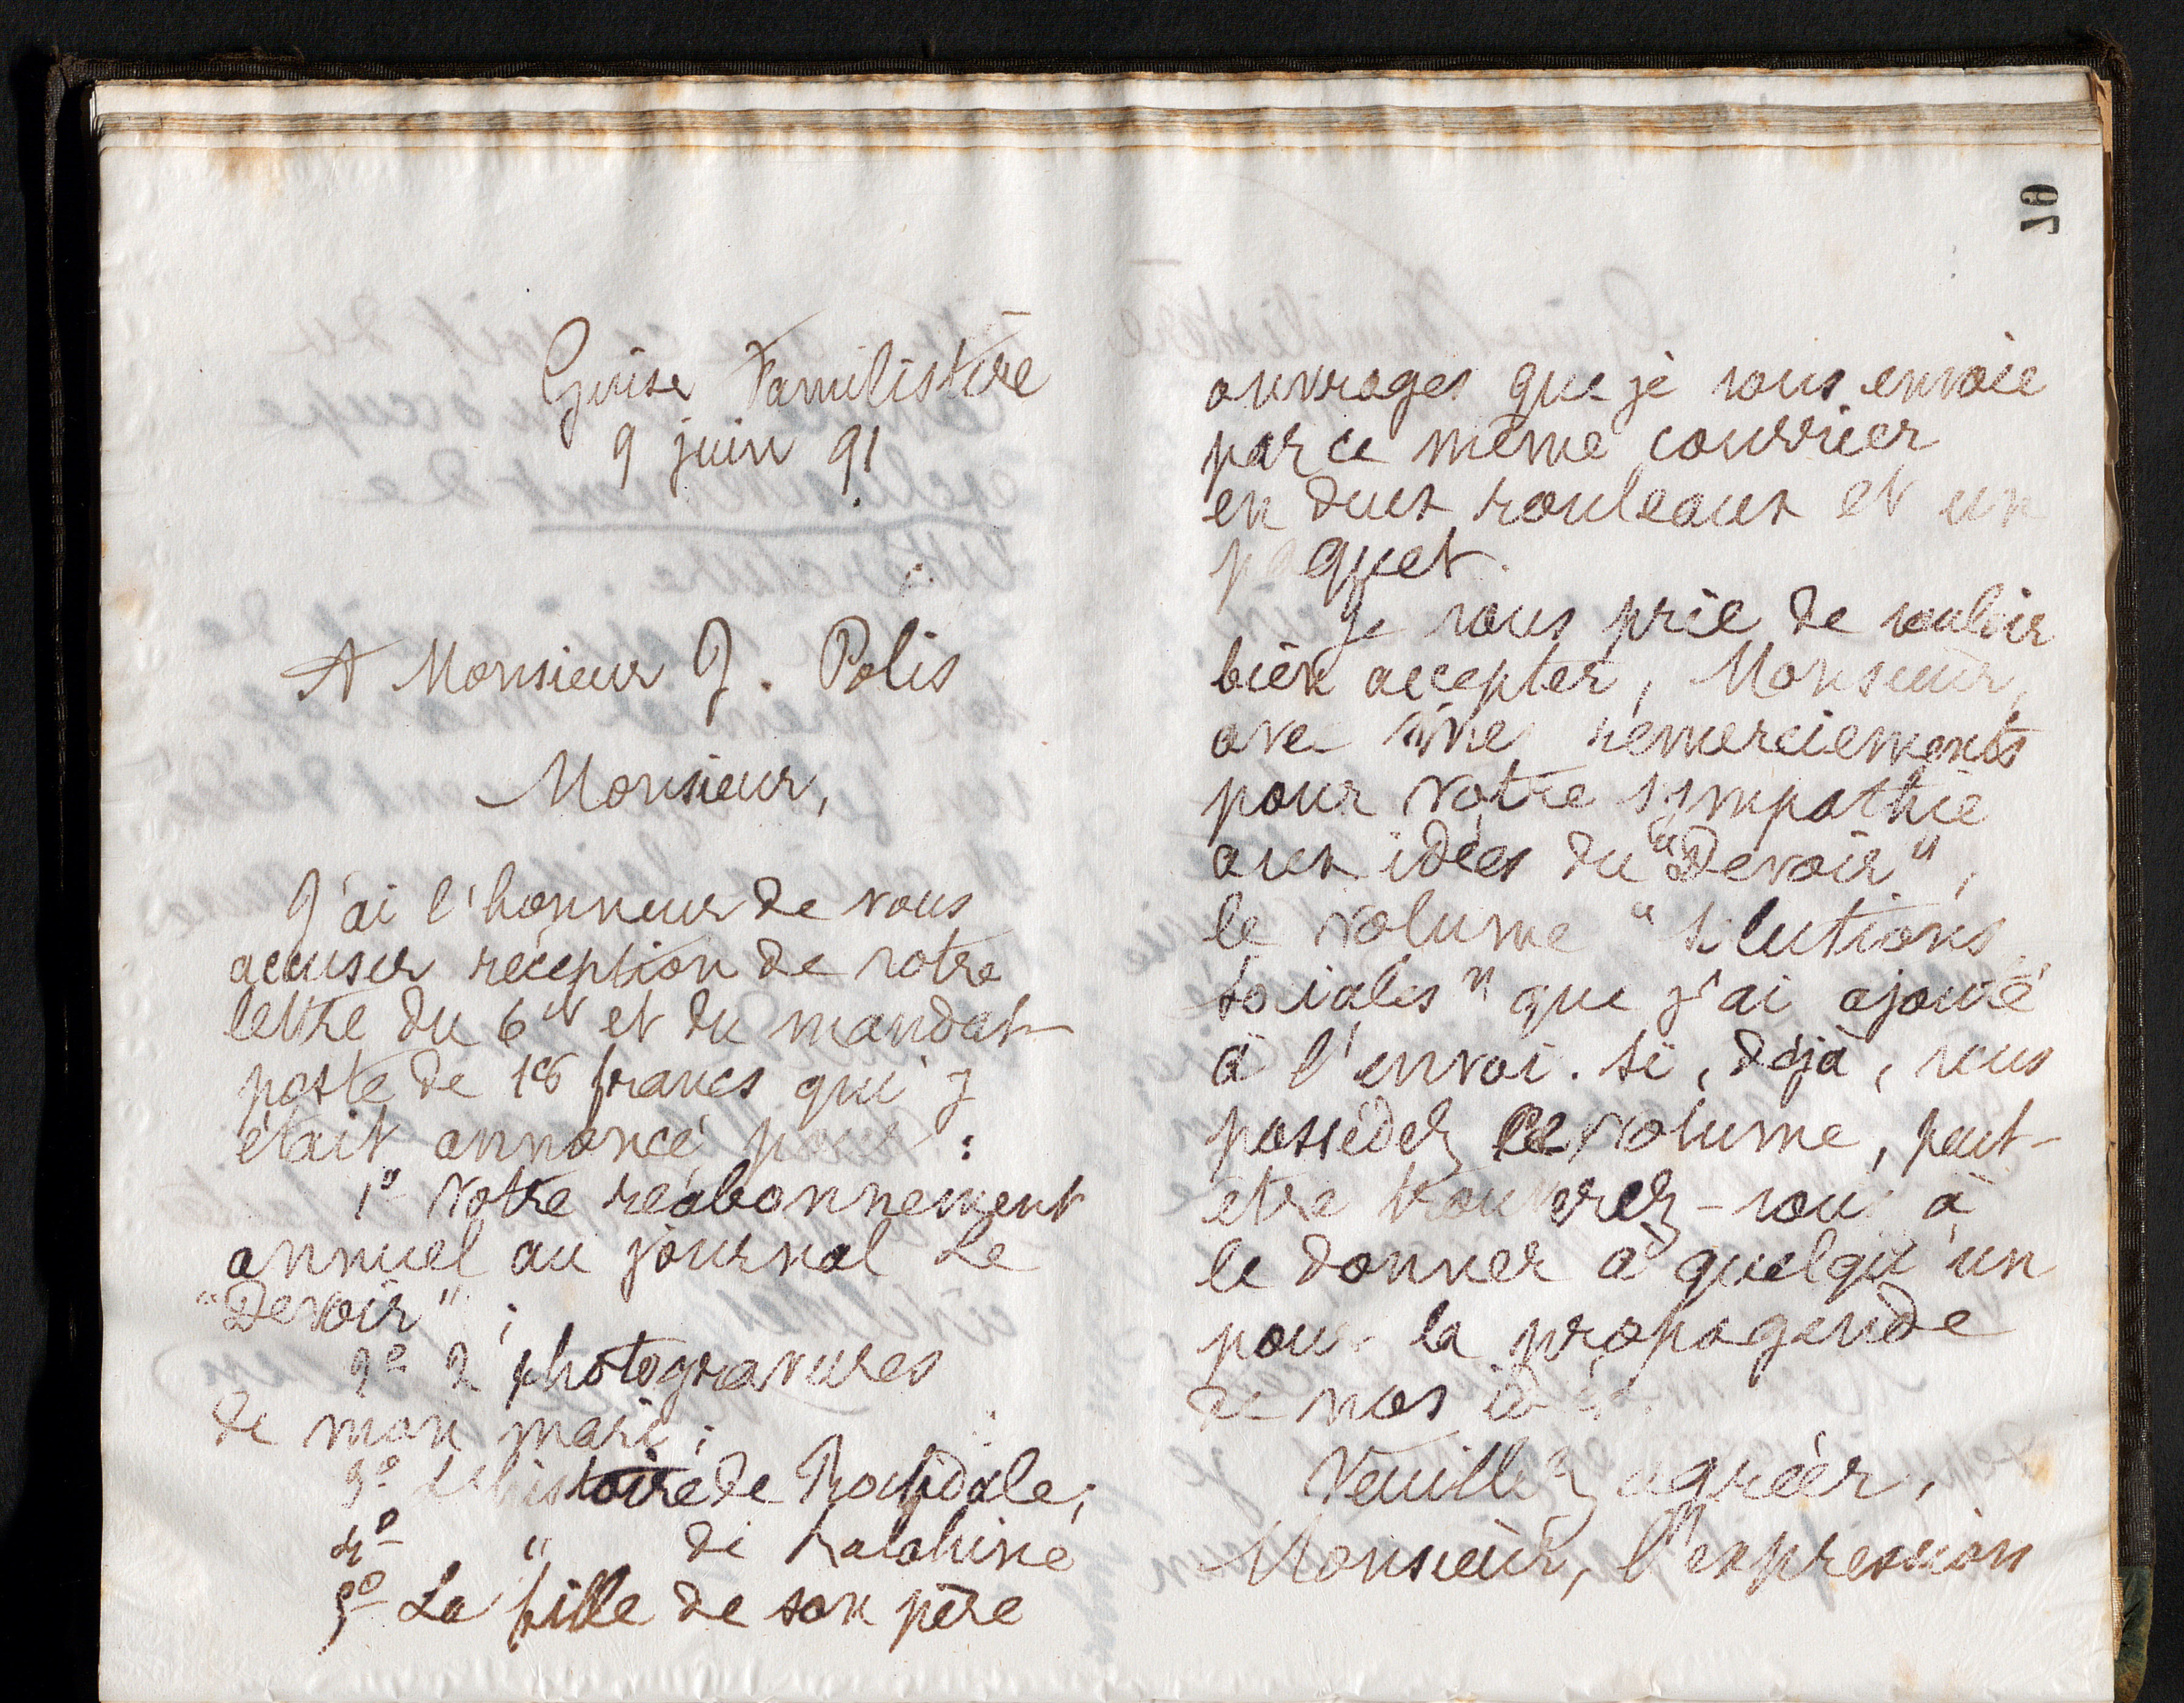 Guise Familistère
9 juin 91
A Monsieur J. Polis
Monsieur,
J'ai l'honneur de vous
accuser réception de votre
lettre du 6 ct et du mandat-
poste de 18 francs qui y
était annoncé pour :
1º Votre réabonnement
annuel au journal Le
"Devoir" ;
2º 2 photogravures
de mon mari ;
3º L'histoire de Rochdale ;
4º " de Ralahine
5º La fille de son père
70
ouvrages que je vous envoie
par ce même courrier
en deux rouleaux et un
paquet.
Je vous prie de vouloir
bien accepter, Monsieur,
avec mes remerciements
pour votre sympathie
aux idées du "Devoir",
le volume "Solutions
sociales" que j'ai ajouté
à l'envoi. Si, déjà, vous
possédez ce volume, peut-
être trouverez-vous à
le donner à quelqu'un
pour la propagande
de nos idées.
Veuillez agréer,
Monsieur, l'expression